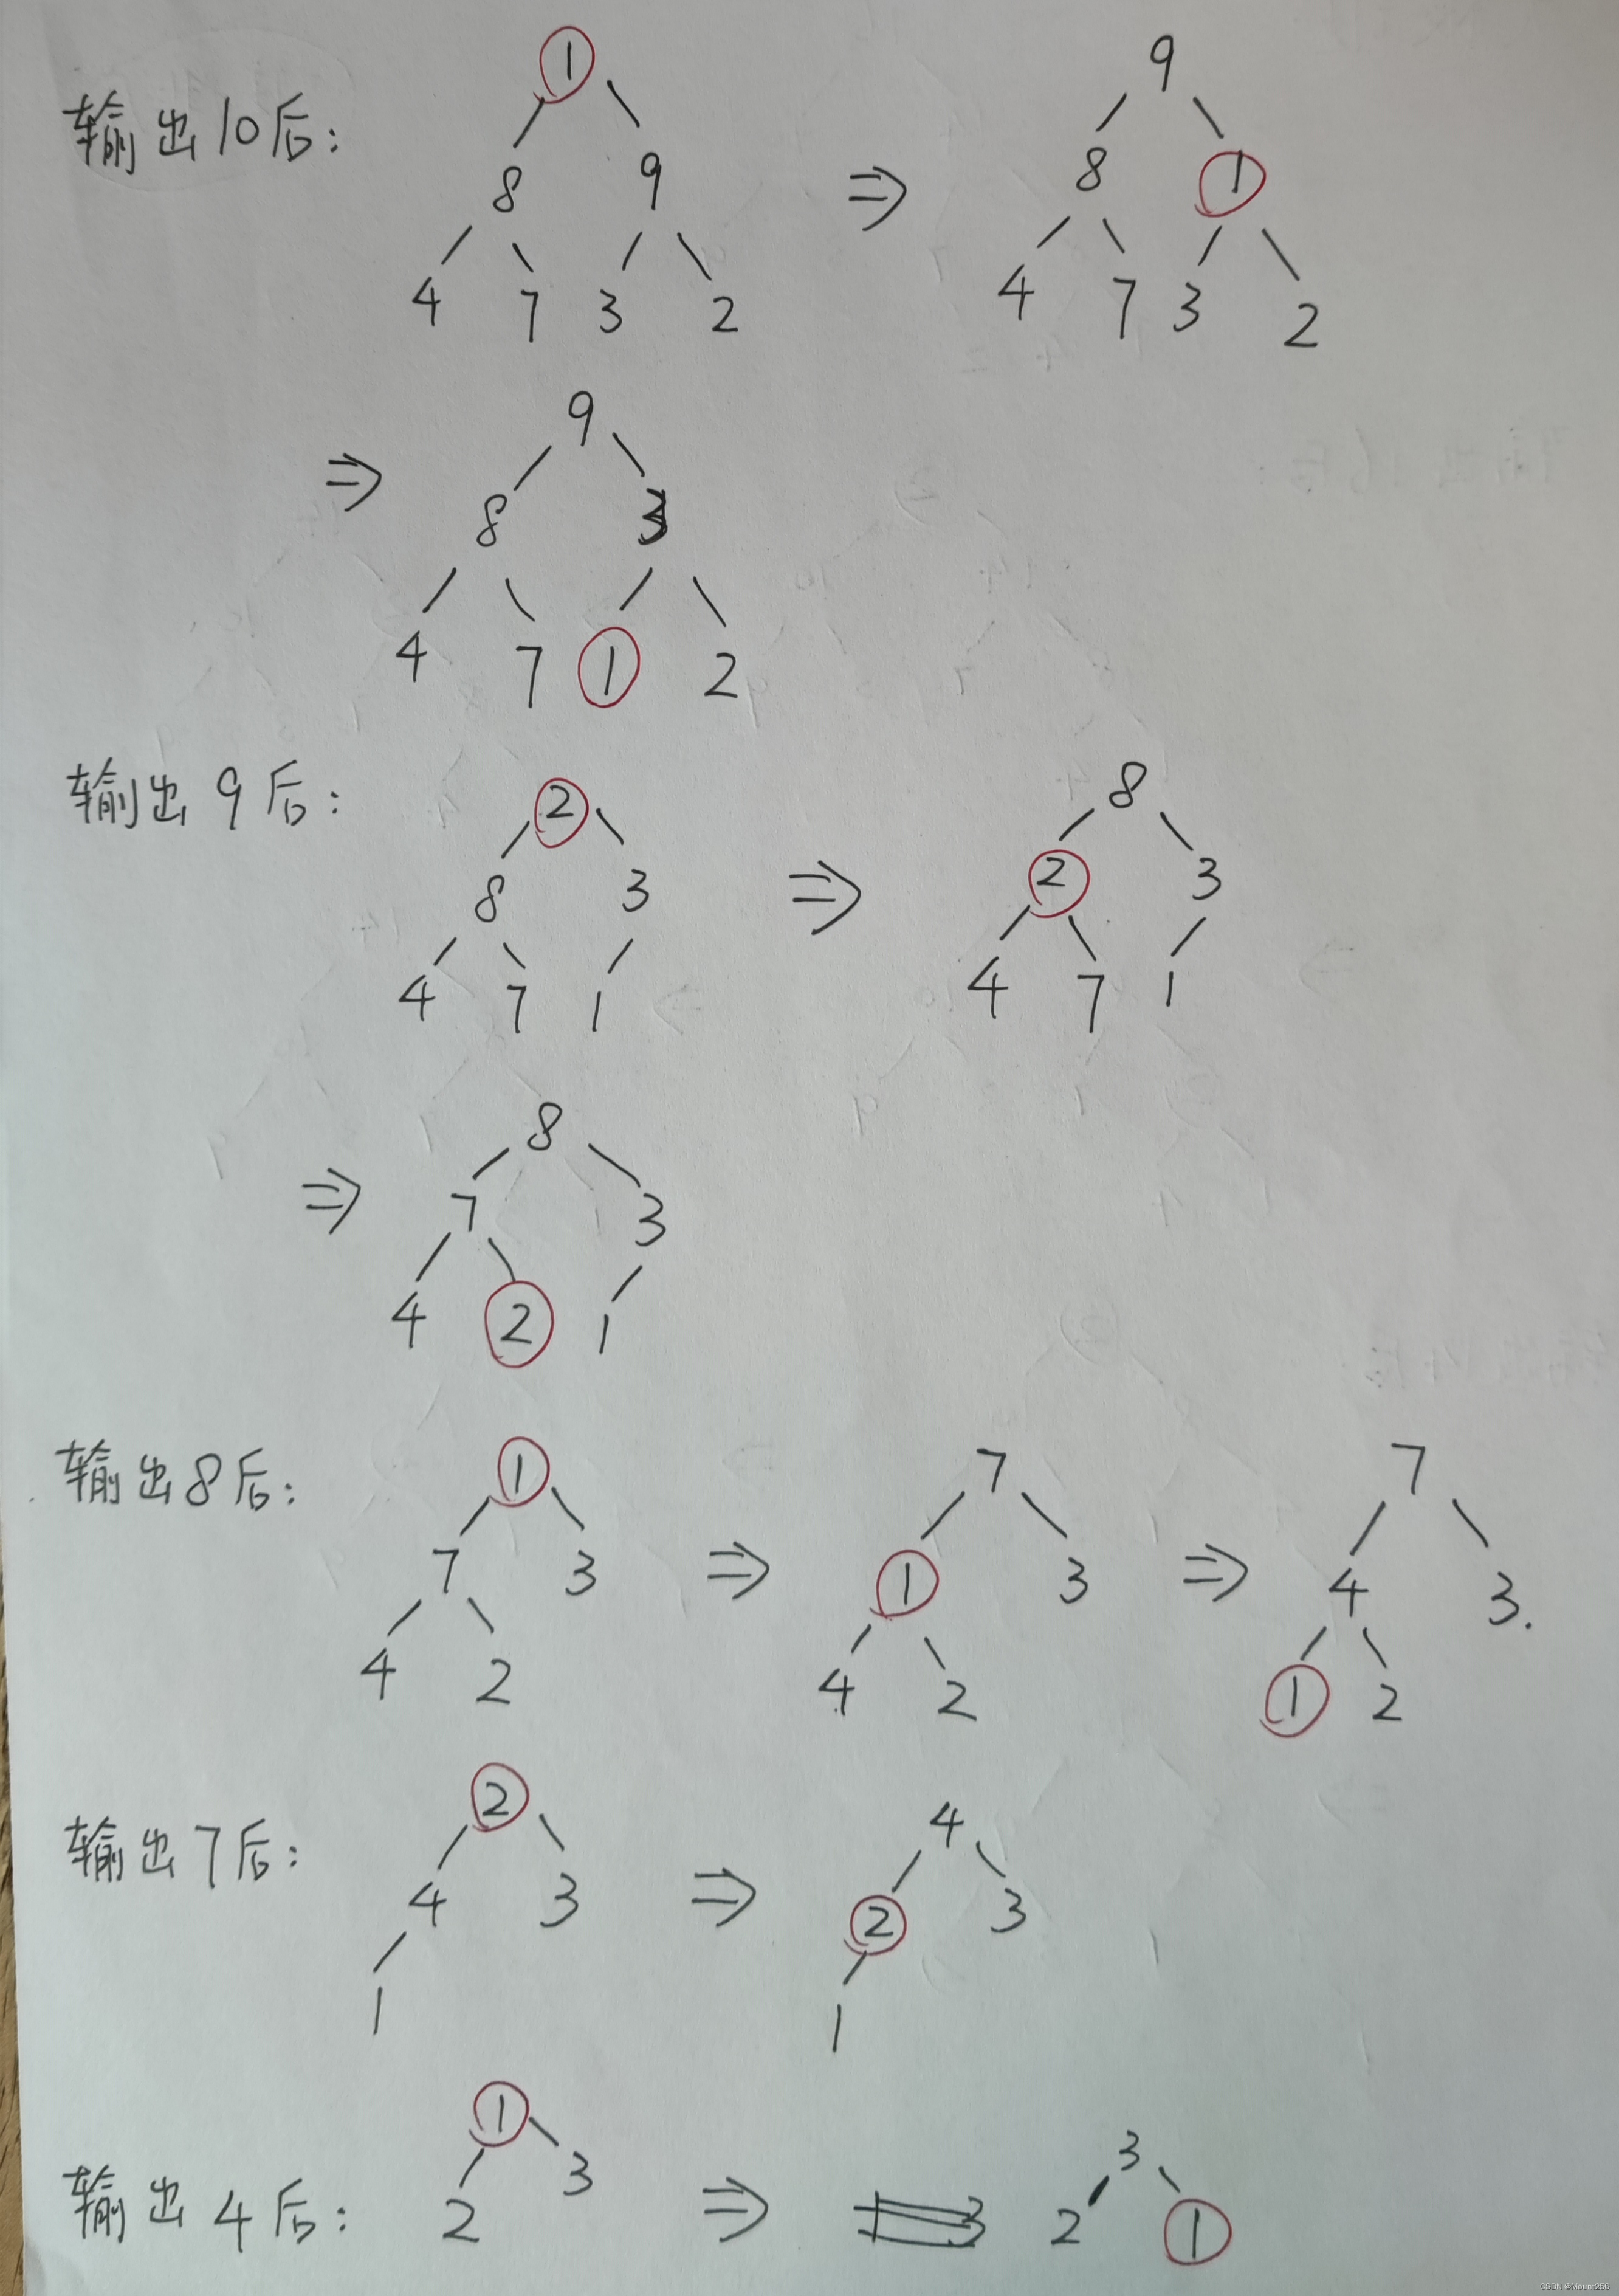 输出10后:
1 ⇒ 9
8 9 8 1
4 7 3 2 4 7 3 2
⇒ 9
8 3
4 7 1 2
输出9后:
2 ⇒ 8
8 3 2 3
4 7 1 4 7 1
⇒ 8
7 3
4 2 1
输出8后:
1 ⇒ 7 ⇒ 7
7 3 1 3 4 3.
4 2 4 2 1 2
输出7后:
2 ⇒ 4
4 3 2 3
1 1
输出4后:
1 ⇒ 3
2 3 2 1
CSDN @Mount256